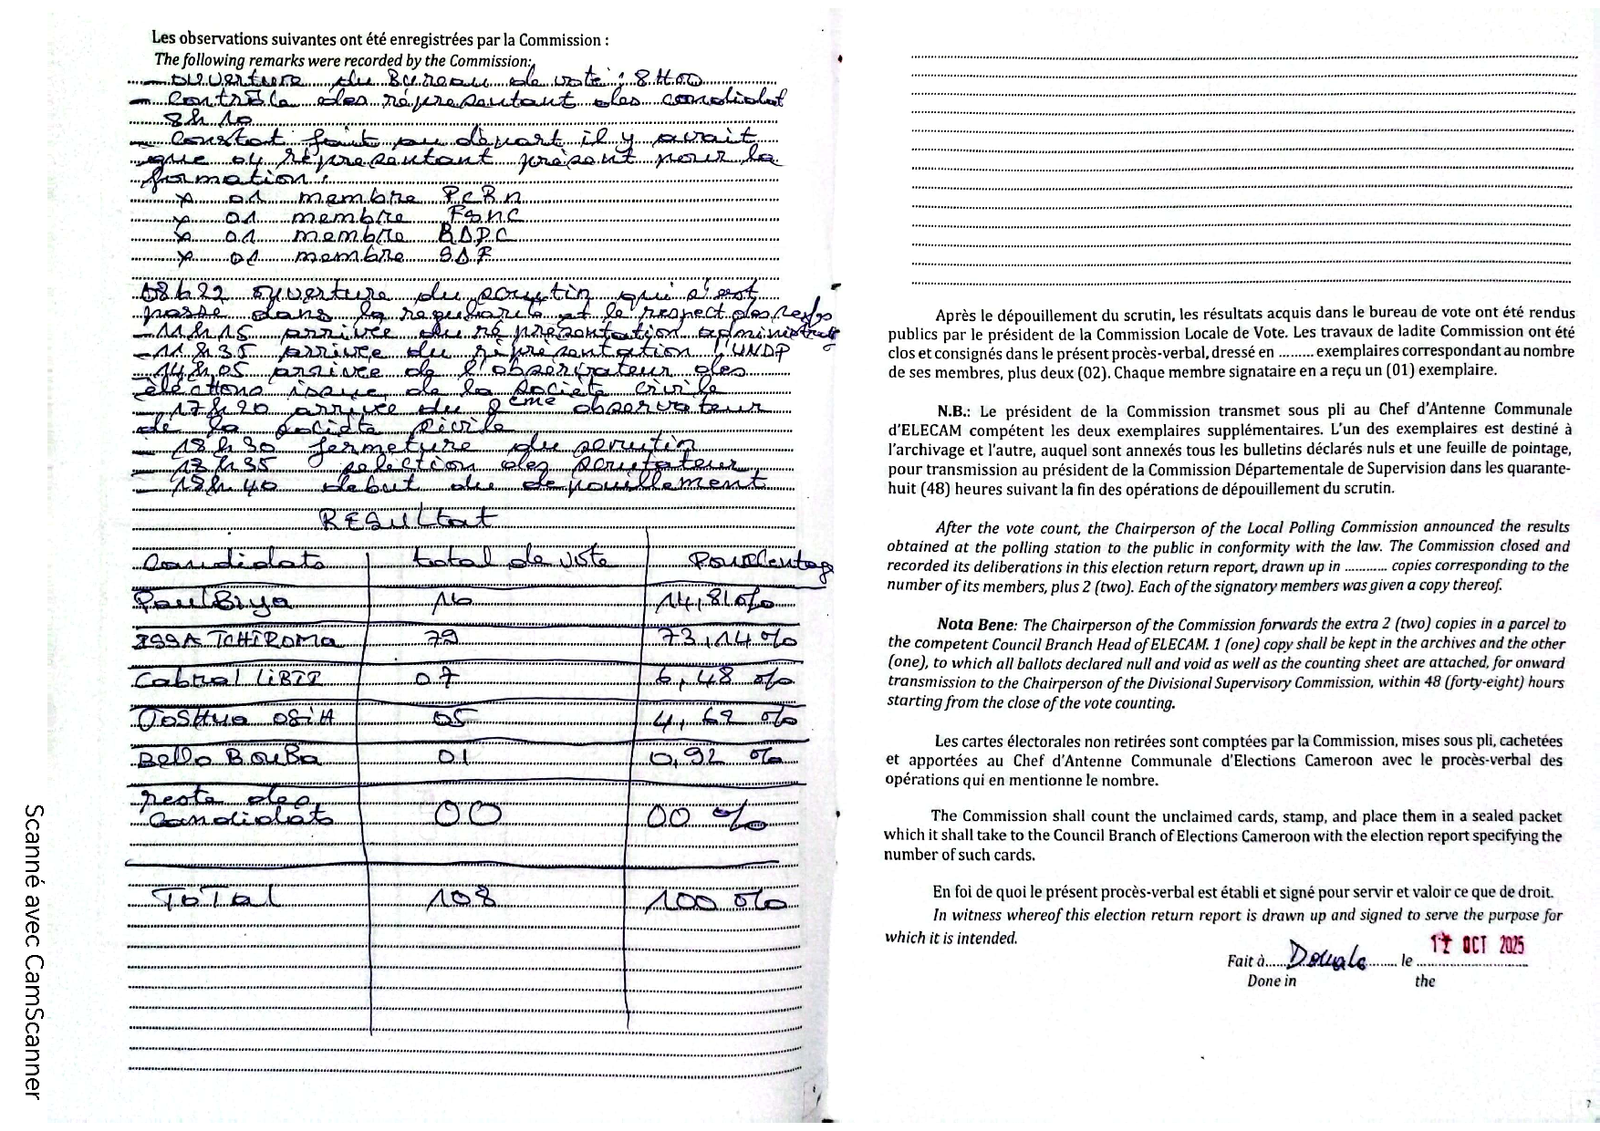 Les observations suivantes ont été enregistrées par la Commission :
The following remarks were recorded by the Commission:
— ouverture du Bureau de vote : 8H00
— Contrôle des représentant des candidat
8h10
— Constat fait au départ il y avait
que 04 représentant présent pour la
formation :
x 01 membre PCRN
x 01 membre FSNC
x 01 membre RDPC
x 01 membre SDF
08h22 ouverture du scrutin qui s'est
passé dans la régularité et le respect des
— 11h15 arrivée du représentation
— 11h35 arrivée du représentation UNDP
— 14h05 arrivée de l'observateur des
éléctions issue de la société civile
— 17h20 arrivée du 2ème observateur
de la société civile
— 18h30 fermeture du scrutin
— selection des scrutateur
— 18h40 debut du depouillement
RESULtat
Candidats total de vote Pourcentage
Paul Biya 16 14,81%
ISSA TCHIROMA 79 73,14%
Cabral LiBII 07 6,48 %
Joshua OSiH 05 4,62 %
Bello BouBa 01 0,92 %
reste des
Candidats 00 00 %
ToTal 108 100 %
Après le dépouillement du scrutin, les résultats acquis dans le bureau de vote ont été rendus
publics par le président de la Commission Locale de Vote. Les travaux de ladite Commission ont été
clos et consignés dans le présent procès-verbal, dressé en ......... exemplaires correspondant au nombre
de ses membres, plus deux (02). Chaque membre signataire en a reçu un (01) exemplaire.
N.B.: Le président de la Commission transmet sous pli au Chef d'Antenne Communale
d'ELECAM compétent les deux exemplaires supplémentaires. L'un des exemplaires est destiné à
l'archivage et l'autre, auquel sont annexés tous les bulletins déclarés nuls et une feuille de pointage,
pour transmission au président de la Commission Départementale de Supervision dans les quarante-
huit (48) heures suivant la fin des opérations de dépouillement du scrutin.
After the vote count, the Chairperson of the Local Polling Commission announced the results
obtained at the polling station to the public in conformity with the law. The Commission closed and
recorded its deliberations in this election return report, drawn up in ........... copies corresponding to the
number of its members, plus 2 (two). Each of the signatory members was given a copy thereof.
Nota Bene: The Chairperson of the Commission forwards the extra 2 (two) copies in a parcel to
the competent Council Branch Head of ELECAM. 1 (one) copy shall be kept in the archives and the other
(one), to which all ballots declared null and void as well as the counting sheet are attached, for onward
transmission to the Chairperson of the Divisional Supervisory Commission, within 48 (forty-eight) hours
starting from the close of the vote counting.
Les cartes électorales non retirées sont comptées par la Commission, mises sous pli, cachetées
et apportées au Chef d'Antenne Communale d'Elections Cameroon avec le procès-verbal des
opérations qui en mentionne le nombre.
The Commission shall count the unclaimed cards, stamp, and place them in a sealed packet
which it shall take to the Council Branch of Elections Cameroon with the election report specifying the
number of such cards.
En foi de quoi le présent procès-verbal est établi et signé pour servir et valoir ce que de droit.
In witness whereof this election return report is drawn up and signed to serve the purpose for
which it is intended.
Fait à Douala le OCT 2025
Done in the
7
Scanné avec CamScanner